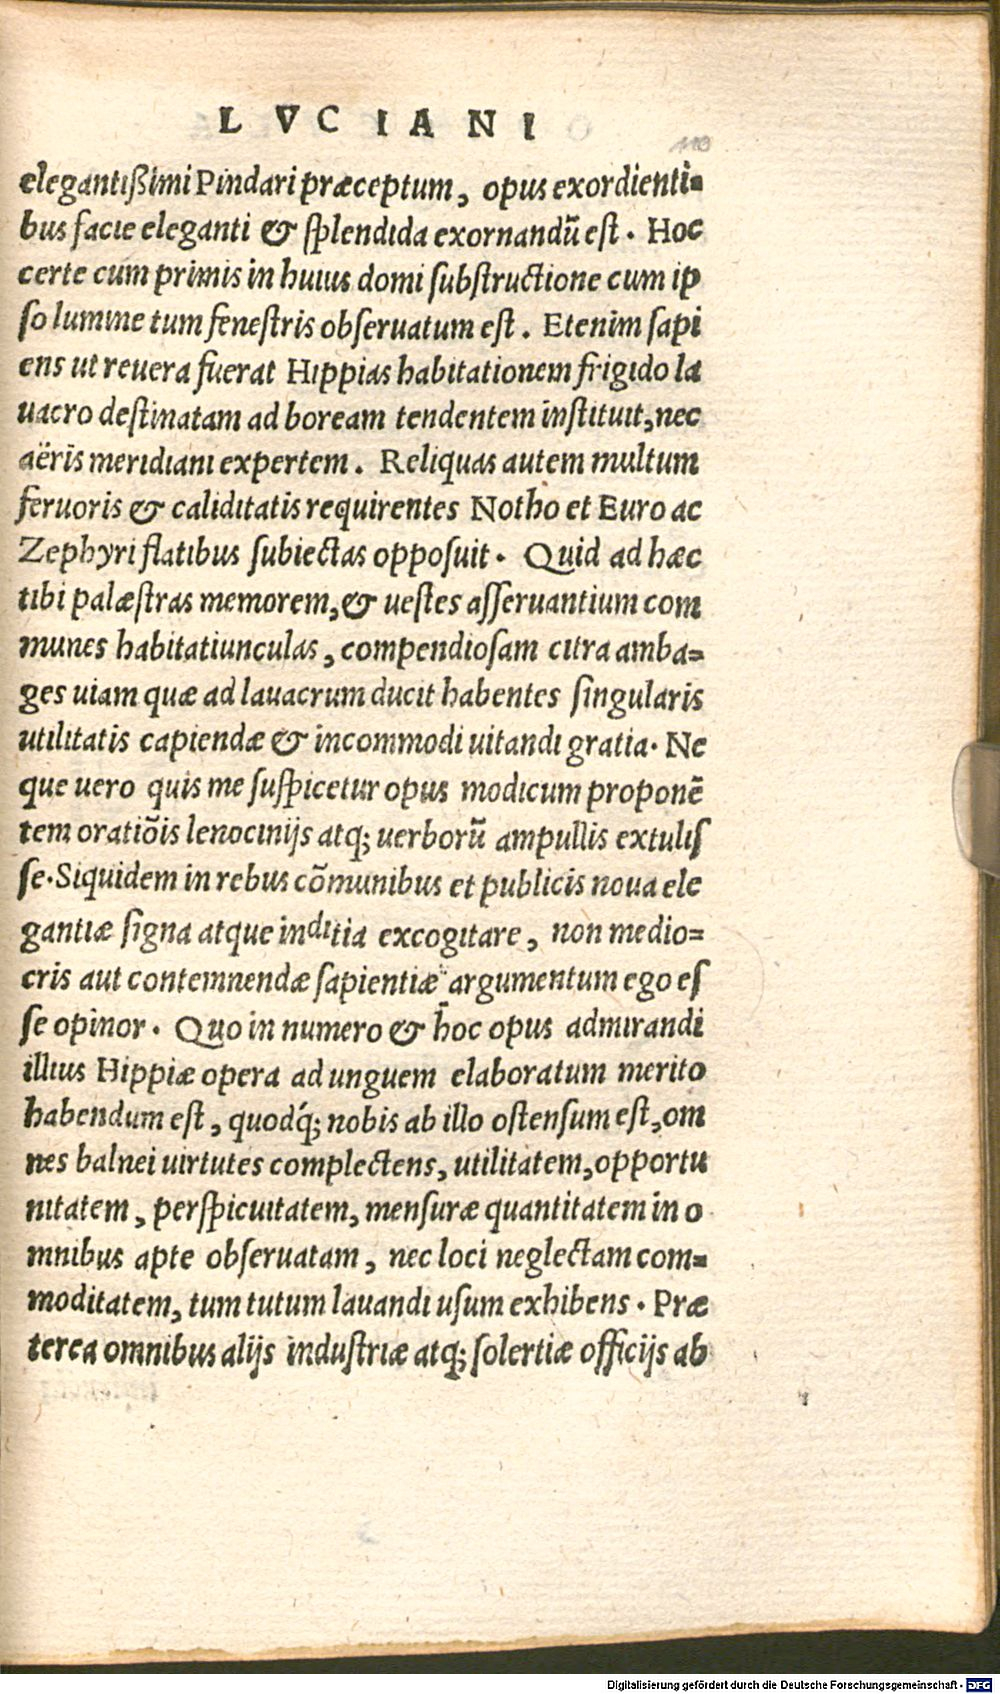 LVCIANI
110
elegantißimi Pindari præceptum, opus exordienti-
bus facie eleganti & splendida exornandū est. Hoc
certe cum primis in huius domi substructione cum ip
so lumine tum fenestris obseruatum est. Etenim sapi
ens ut reuera fuerat Hippias habitationem frigido la
uacro destinatam ad boream tendentem instituit, nec
aëris meridiani expertem. Reliquas autem multum
feruoris & caliditatis requirentes Notho et Euro ac
Zephyri flatibus subiectas opposuit. Quid ad hæc
tibi palæstras memorem, & uestes asseruantium com
munes habitatiunculas, compendiosam citra amba-
ges uiam quæ ad lauacrum ducit habentes singularis
utilitatis capiendæ & incommodi uitandi gratia. Ne
que uero quis me suspicetur opus modicum proponē
tem oratiōis lenocinijs atq; uerborū ampullis extulis
se. Siquidem in rebus cōmunibus et publicis noua ele
gantiæ signa atque inditia excogitare, non medio-
cris aut contemnendæ sapientiæ argumentum ego es
se opinor. Quo in numero & hoc opus admirandi
illius Hippiæ opera ad unguem elaboratum merito
habendum est, quodq́; nobis ab illo ostensum est, om
nes balnei uirtutes complectens, utilitatem, opportu
nitatem, perspicuitatem, mensuræ quantitatem in o
mnibus apte obseruatam, nec loci neglectam com-
moditatem, tum tutum lauandi usum exhibens. Præ
terea omnibus alijs industriæ atq; solertiæ officijs ab
Digitalisierung gefördert durch die Deutsche Forschungsgemeinschaft - DFG